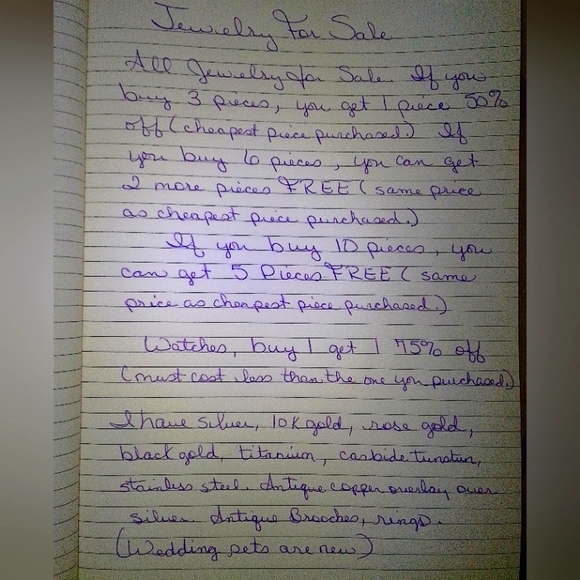 Jewelry For Sale
All Jewelry for Sale. If you
buy 3 pieces, you get 1 piece 50%
off (cheapest piece purchased.) If
you buy 6 pieces, you can get
2 more pieces FREE (same price
as cheapest piece purchased.)
If you buy 10 pieces, you
can get 5 Pieces FREE (same
price as cheapest piece purchased.)
Watches, buy 1 get 1 75% off
(must cost less than the one you purchased.)
I have silver, 10K gold, rose gold,
black gold, titanium, carbide tunstun,
stainless steel. Antique copper overlay over
silver. Antique Brooches, rings.
(Wedding sets are new)